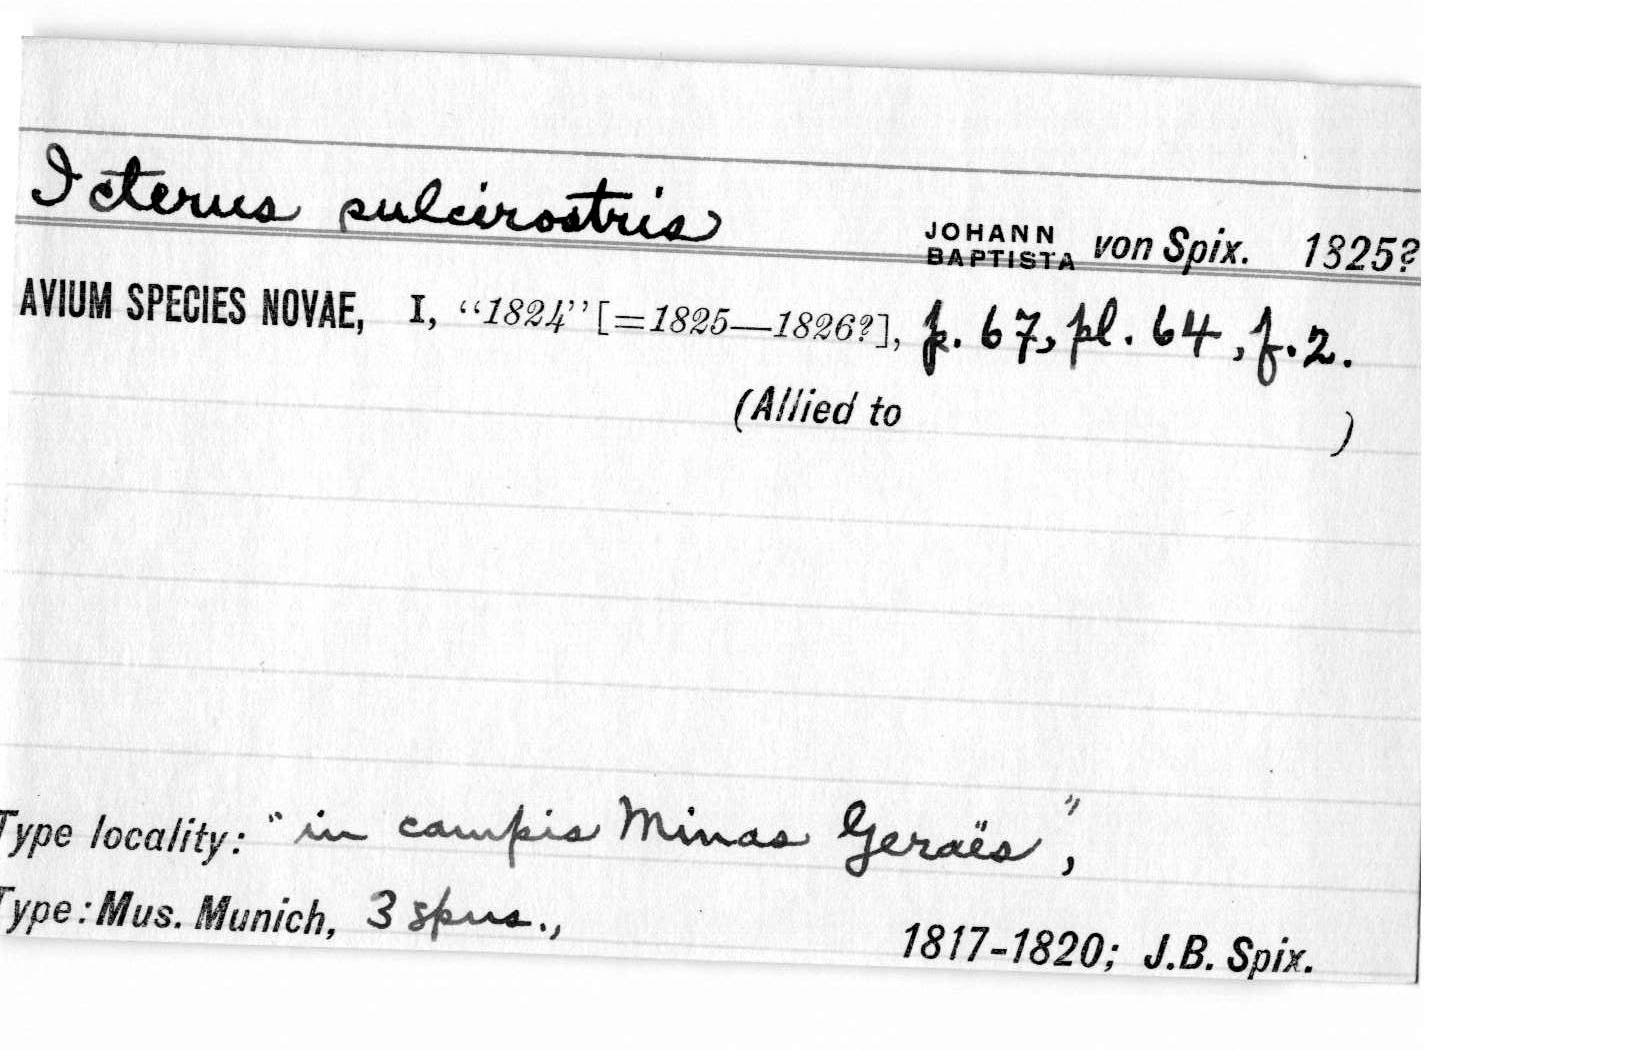 Icterus sulcirostris JOHANN BAPTISTA von Spix. 1825?
AVIUM SPECIES NOVAE, I, "1824" [=1825—1826?], p. 67, pl. 64, f. 2.
(Allied to )
Type locality: "in campis Minas Geraës",
Type: Mus. Munich, 3 spms., 1817-1820; J.B. Spix.